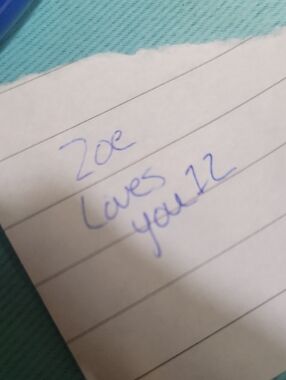 Zoe
Loves
you 12